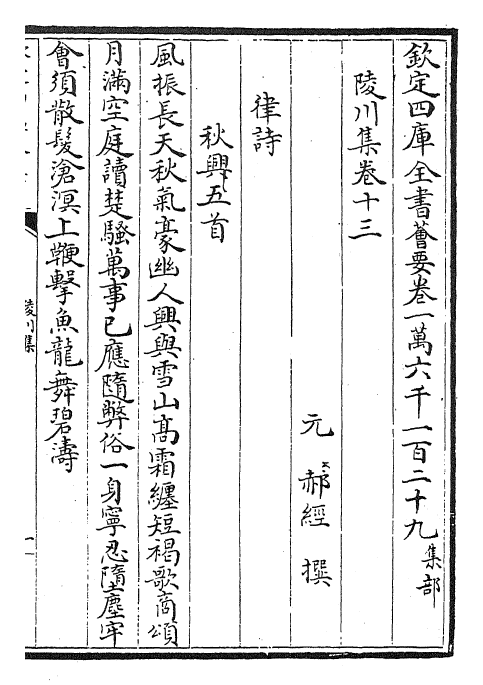 欽定四庫全書薈要卷一萬六千一百二十九集部
陵川集卷十三
元郝經撰
律詩
秋興五首
風振長天秋氣豪幽人興與雪山髙霜纏短褐歌商頌
月滿空庭讀楚騷萬事已應隨弊俗一身寧忍墮塵牢
會須散髮滄溟上鞭擊魚龍舞碧濤
陵川集
一